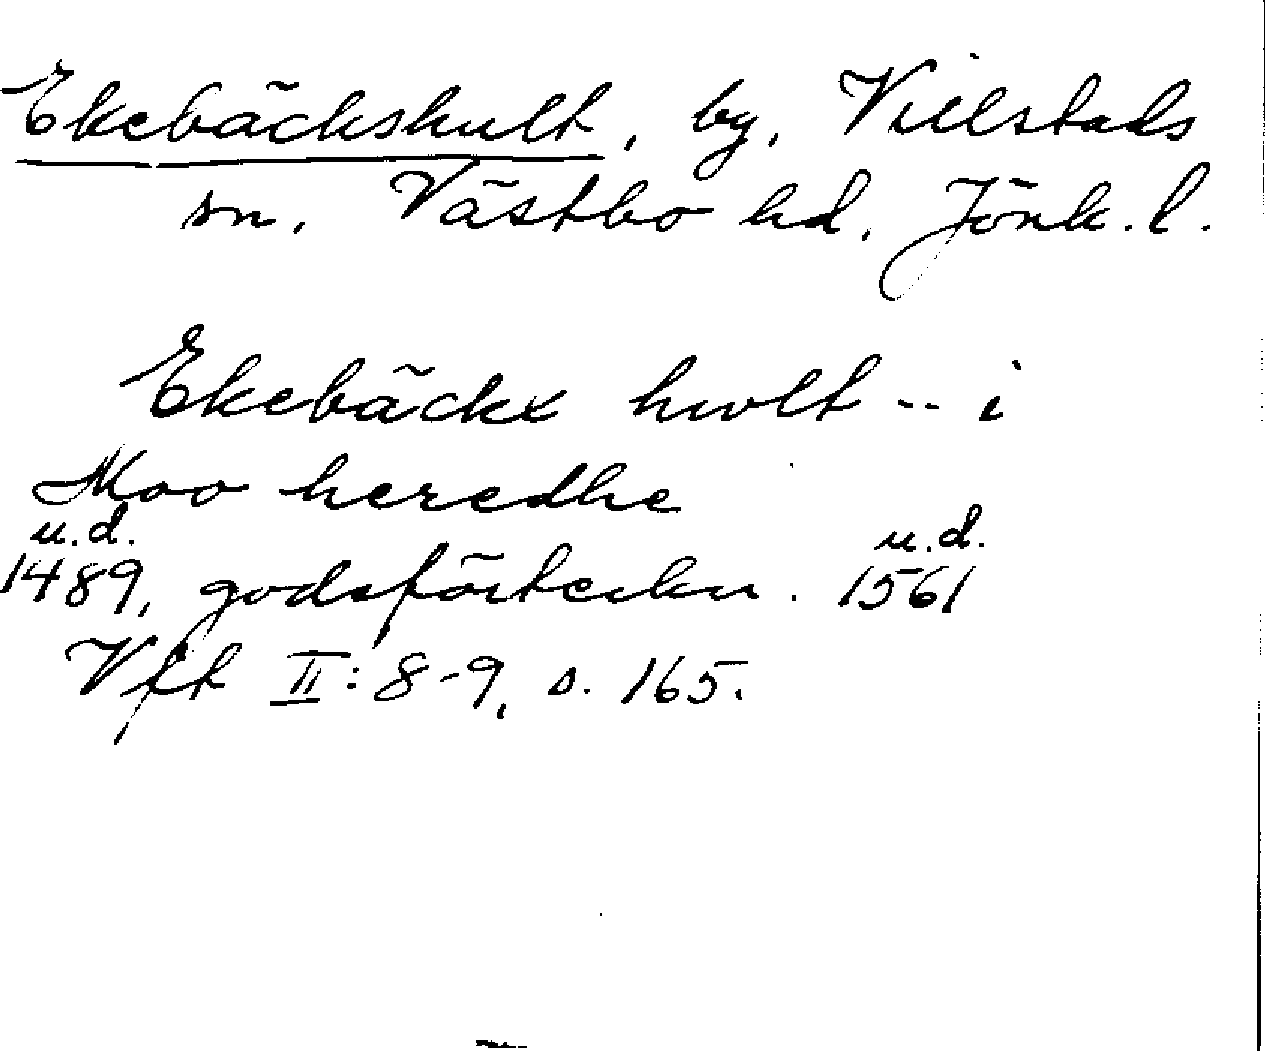 Ekebäckshult, by, Villstads
sn. Västbo hd. Jönk. l.
Ekebäckx hwlt -- i
Moo heredhe
u.d. u.d.
1489, godsförteckn. 1561
Vft II: 8-9, s. 165.